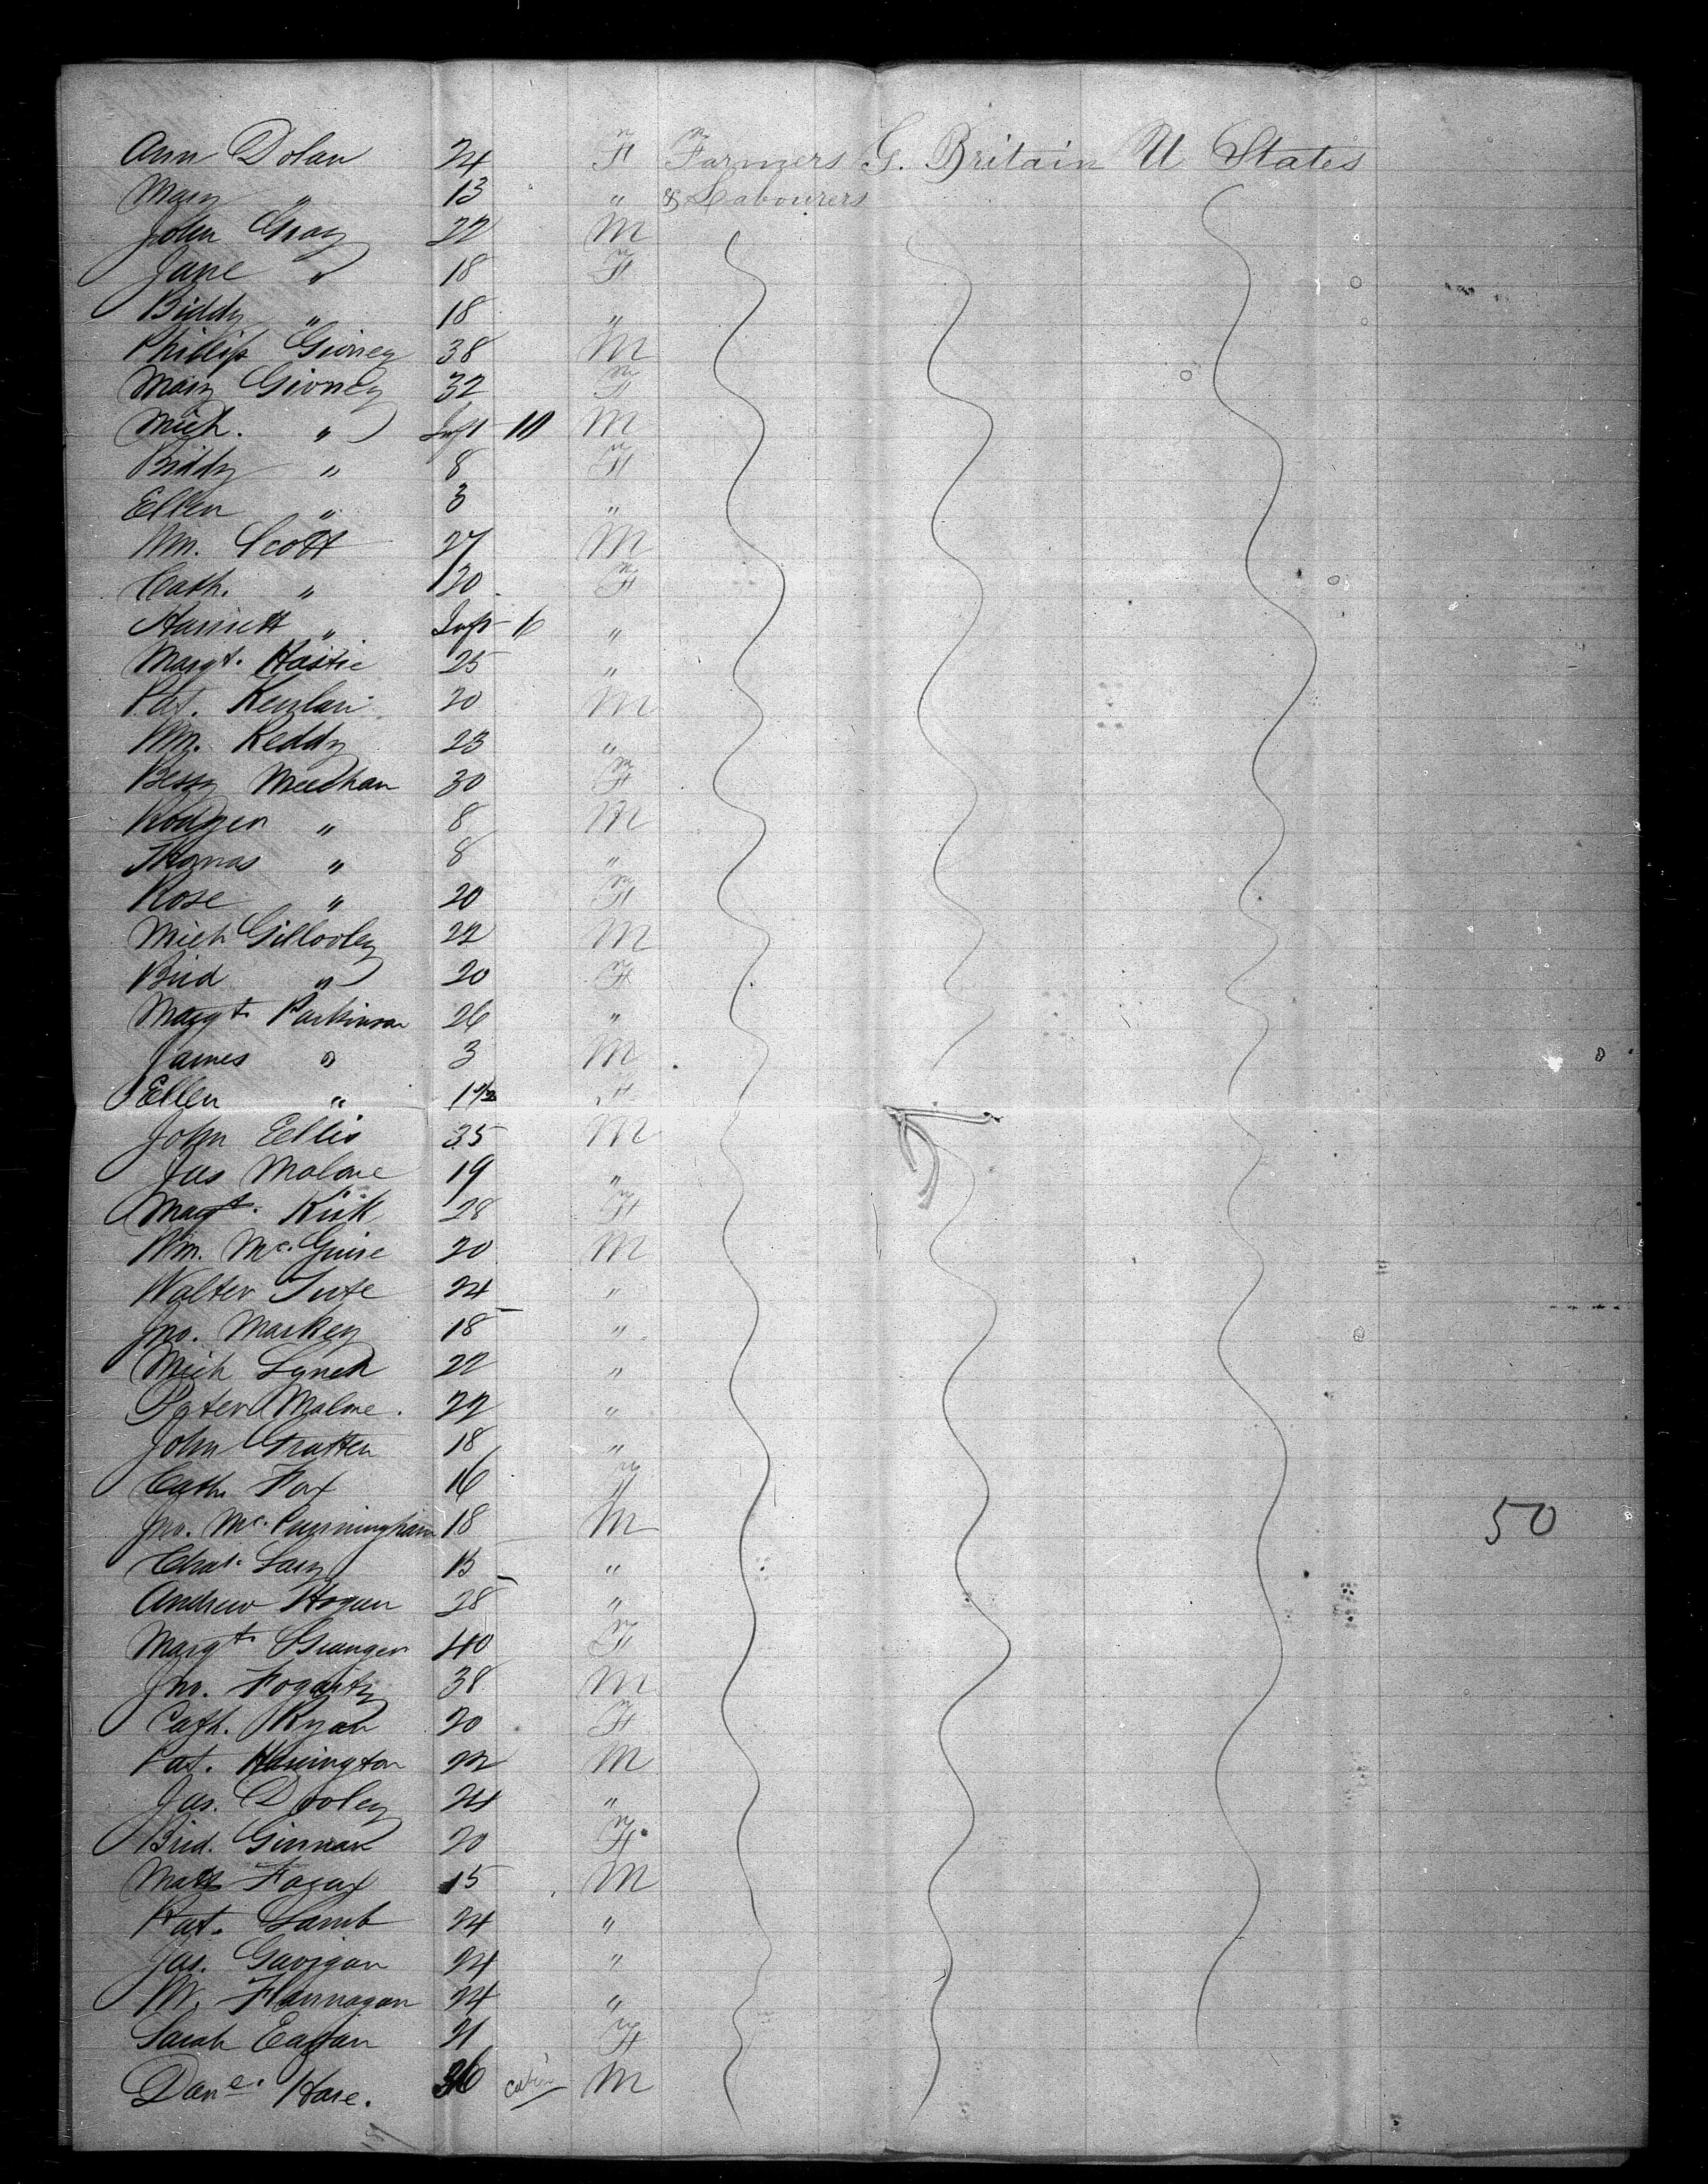 Ann Dolan 24 F Farmers G. Britain U States
Mary " 13 " & Labourers
John Gray 22 M
Jane " 18 F
Biddy " 18 "
Phillip Givney 38 M
Mary Givney 32 F
Mich. " Inft 10 M
Biddy " 8 F
Ellen " 3 "
Wm. Scott 27 M
Cath. " 20 F
Harriett " Inft 6 "
Margt. Hastie 25 "
Pat. 20 M
Wm. Reddy 23 "
Bessy Meehan 30 F
Rodger " 8 M
Thomas " 8 "
Rose " 20 F
Mich Gillooley 22 M
Brid " 20 F
Margt. Parkinson 26 "
James " 3 M
Ellen " 1 1/2 F
John Ellis 35 M
Jas Malone 19 "
Margt. Kirk 28 F
Wm. Mc. Guire 20 M
Walter Tute 24 "
Jno. Markey 18 "
Mich Lynch 22 "
Peter Malone. 22 "
John Gratten 18 "
Cath. Fox 16 F
Jno. Mc. Cunningham 18 M 50
Chas. 15 "
Andrew Hogan 28 "
Margt. Granger 40 F
Jno. Fogarty 38 M
Cath. Ryan 20 F
Pat. Harrington 22 M
Jas. Dooley 24 "
Brid. Ginnan 20 F
15 M
Pat. Lamb 24 "
Jas. Gavigan 24 "
W. Flannagan 24 "
Sarah Eagan 21 F
Dane. Hare. 36 cabin M